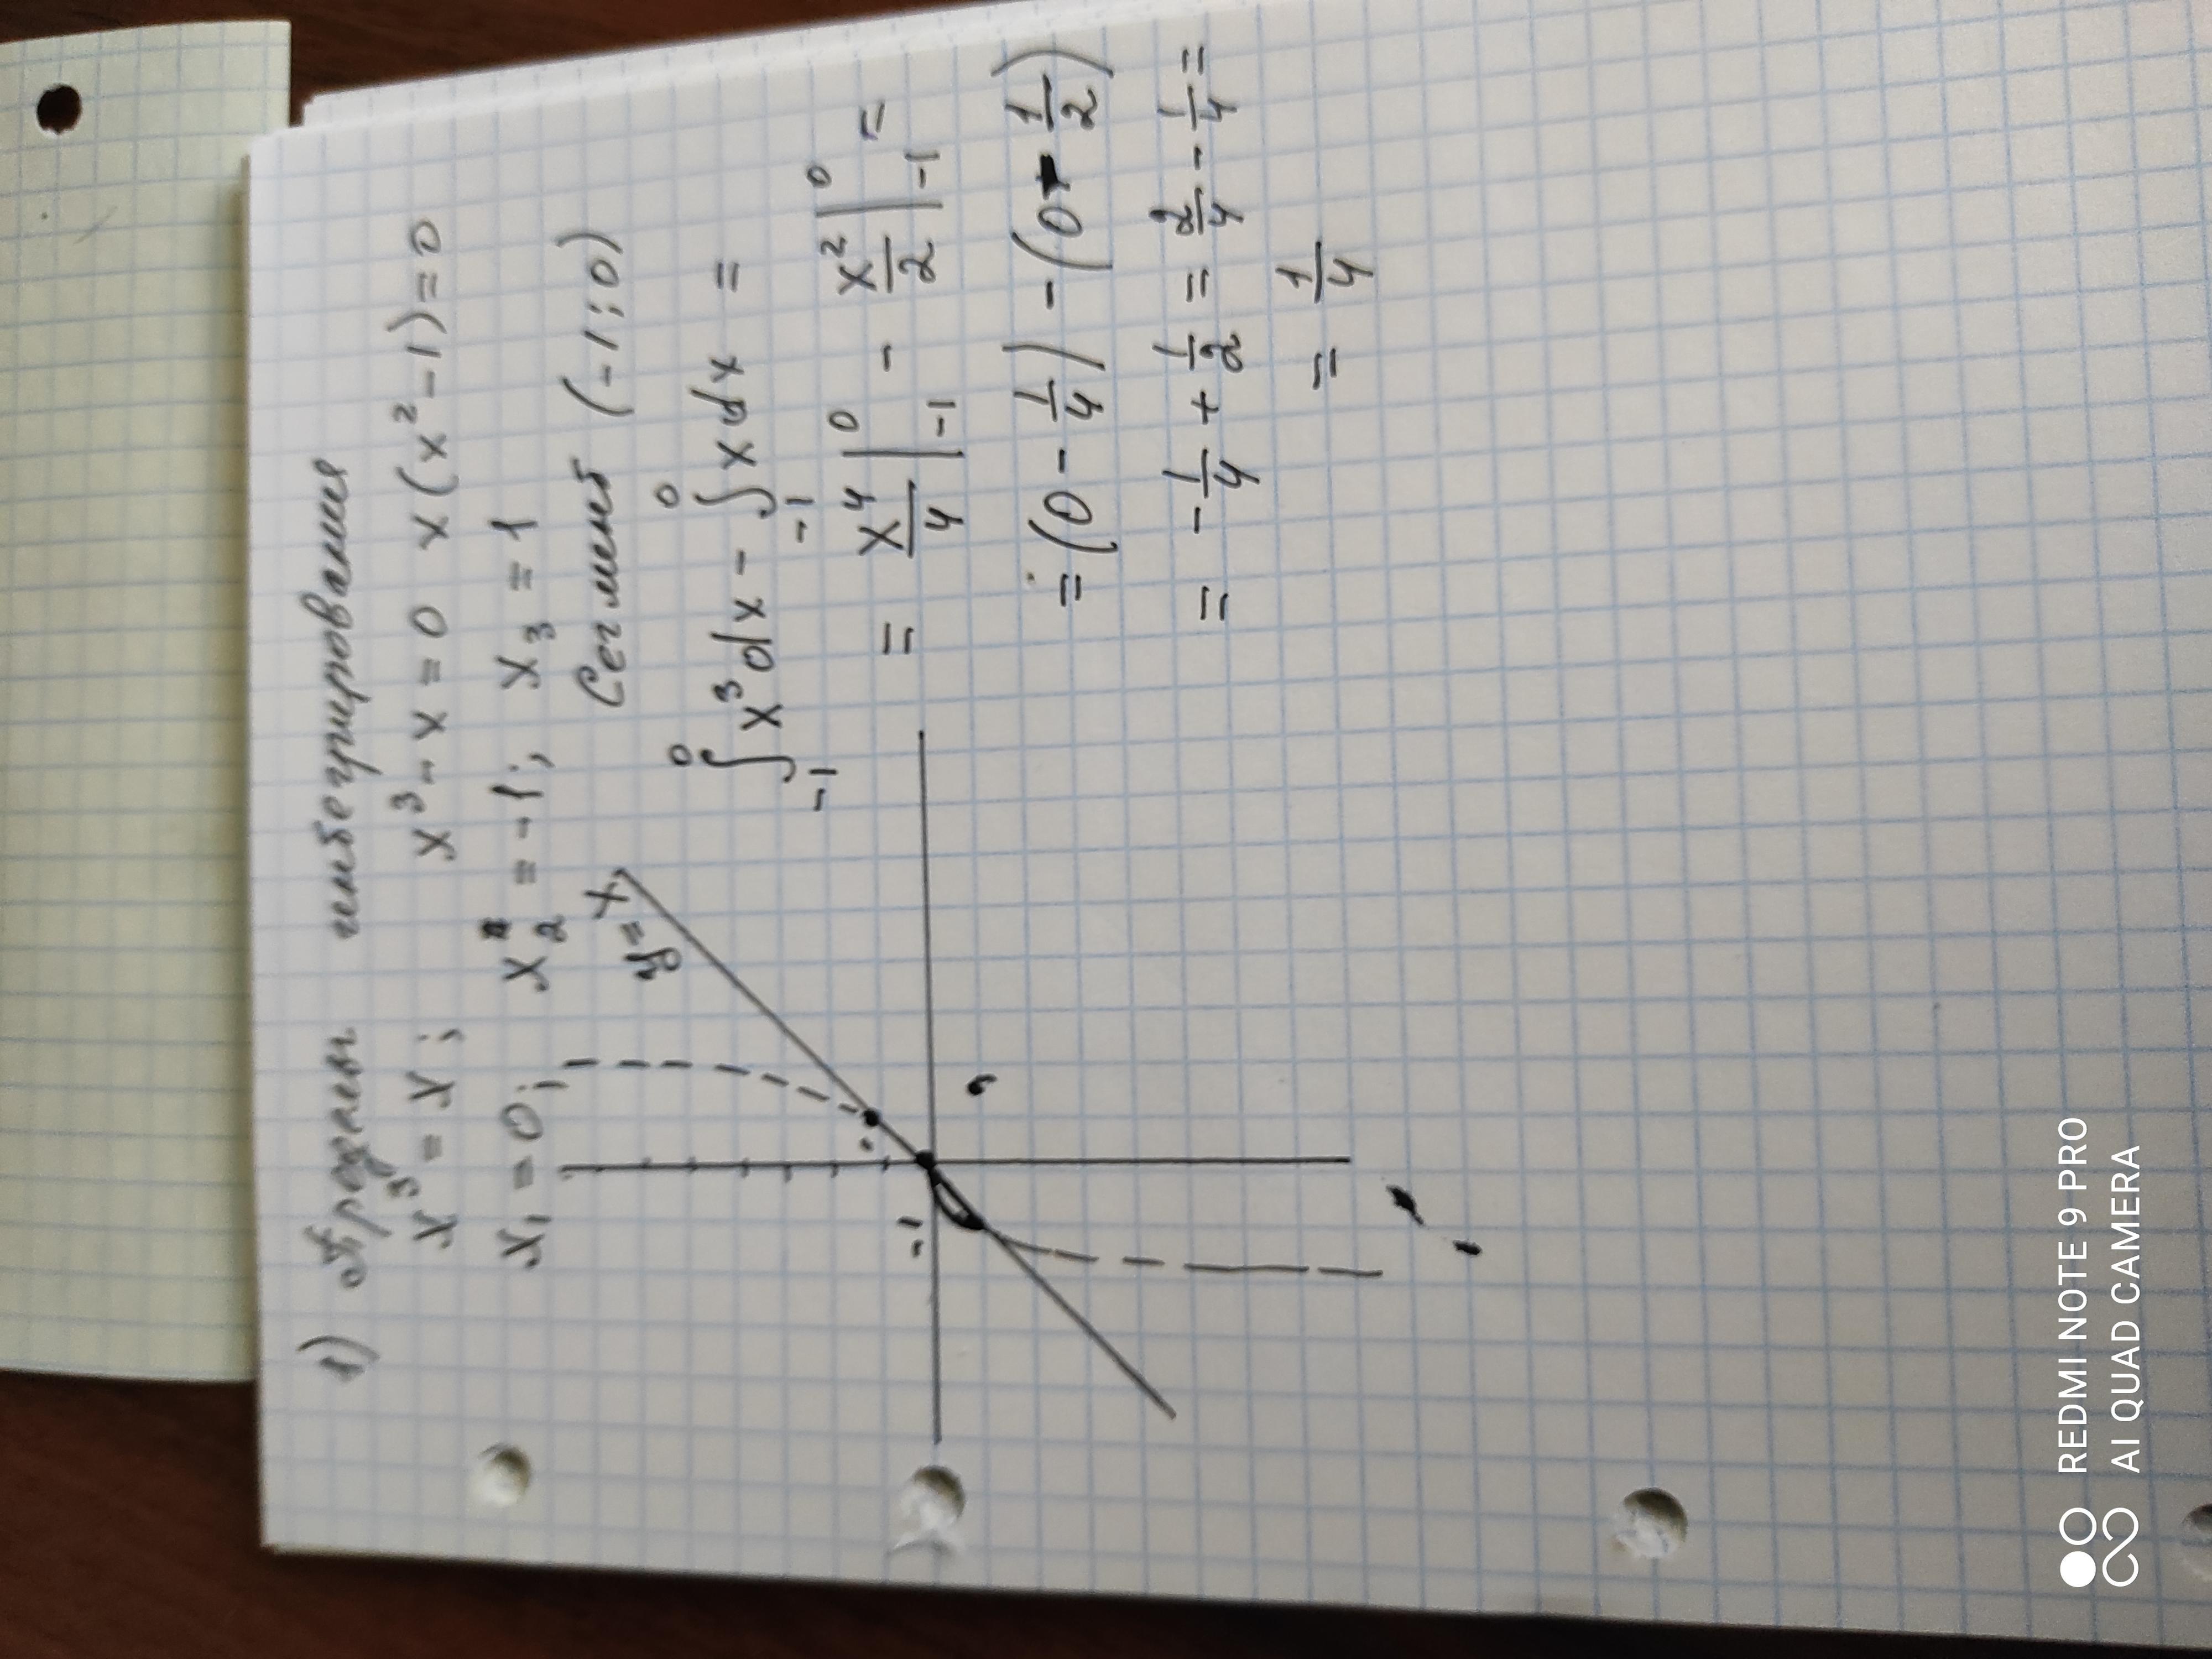 1) отрезки интегрирования
x³ = x; x³ - x = 0 x(x² - 1) = 0
x₁ = 0; x₂ = -1; x₃ = 1
Сегмент (-1; 0)
y = x
-1
∫₋₁⁰ x³dx - ∫₋₁⁰ xdx =
= x⁴/4 |₋₁⁰ - x²/2 |₋₁⁰ =
= (0 - 1/4) - (0 - 1/2)
= - 1/4 + 1/2 = 2/4 - 1/4 =
= 1/4
REDMI NOTE 9 PRO
AI QUAD CAMERA